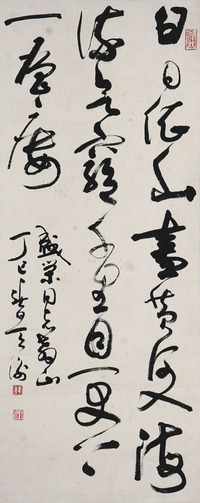 白日依山盡黃河入海
流欲窮千里目更上
一層樓
同志
丁巳